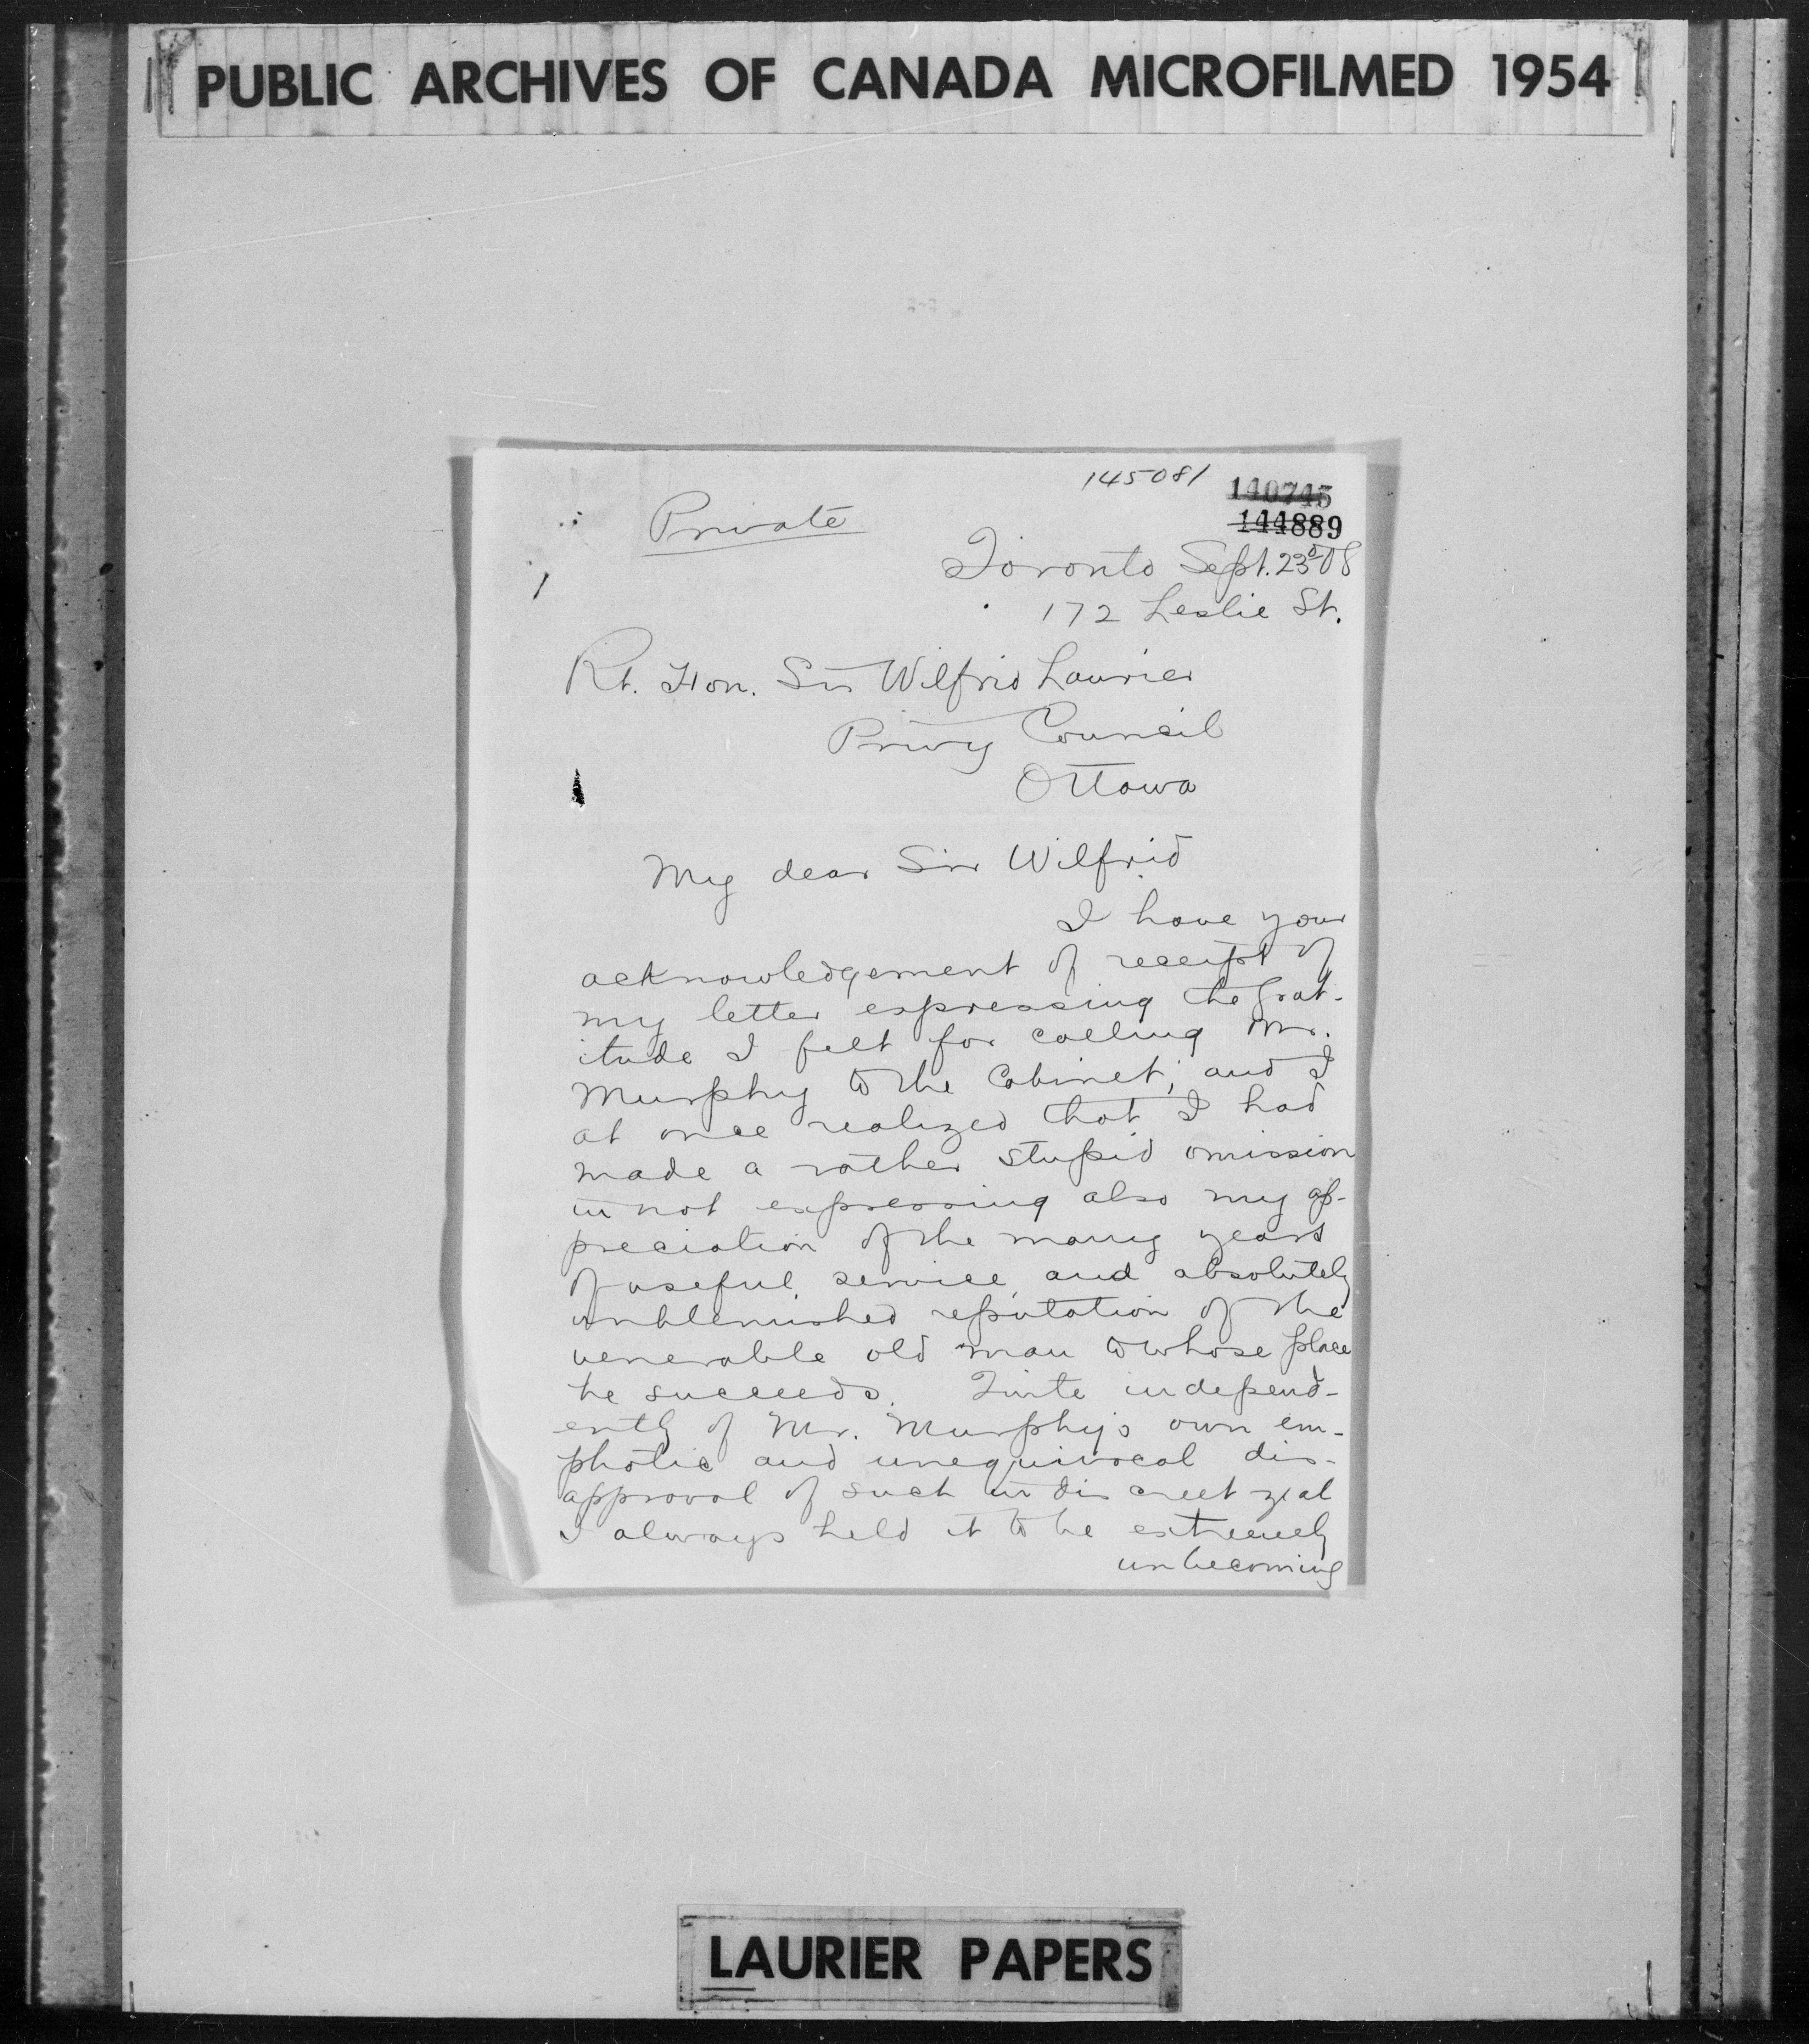 PUBLIC ARCHIVES OF CANADA MICROFILMED 1954
145081
140745
144889
Private
Toronto Sept. 23d 08
172 Leslie St.
Rt. Hon. Sir Wilfrid Laurier
Privy Council
Ottawa
My dear Sir Wilfrid
I have your
acknowledgement of receipt of
my letter expressing the grat-
itude I felt for calling Mr.
Murphy to the Cabinet; and I
at once realized that I had
made a rather stupid omission
in not expressing also my ap-
preciation of the many years
of useful service and absolutely
unblemished reputation of the
venerable old man to whose place
he succeeds. Quite independ-
ently of Mr. Murphy's own em-
phatic and unequivocal dis-
approval of such indiscreet zeal
I always held it to be extremely
unbecoming
LAURIER PAPERS